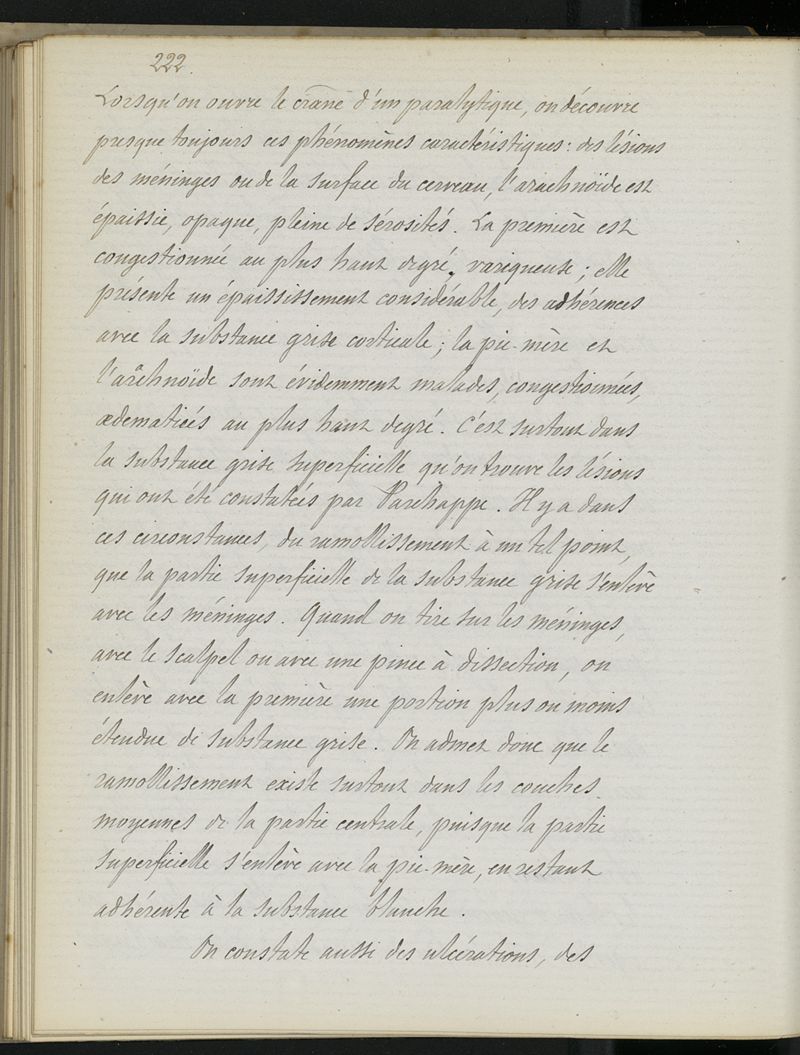 222.
Lorsqu'on ouvre le crâne d'un paralytique, on découvre
presque toujours ces phénomènes caractéristiques: des lésions
des méninges ou de la surface du cerveau, l'arachnoïde est
épaissie, opaque, pleine de sérosités. La première est
congestionnée au plus haut degré, variqueuse; elle
présente un épaississement considérable, des adhérences
avec la substance grise corticale; la pie-mère et
l'arachnoïde sont évidemment malades, congestionnées,
œdematiées au plus haut degré. C'est surtout dans
la substance grise superficielle qu'on trouve les lésions
qui ont été constatées par Parchappe. Il y a dans
ces circonstances, du ramollissement à un tel point,
que la partie superficielle de la substance grise s'enlève
avec les méninges. Quand on tire sur les méninges,
avec le scalpel ou avec une pince à dissection, on
enlève avec la première une portion plus ou moins
étendue de substance grise. On admet donc que le
ramollissement existe surtout dans les couches
moyennes de la partie centrale, puisque la partie
superficielle s'enlève avec la pie-mère, en restant
adhérente à la substance blanche.
On constate aussi des ulcérations, des